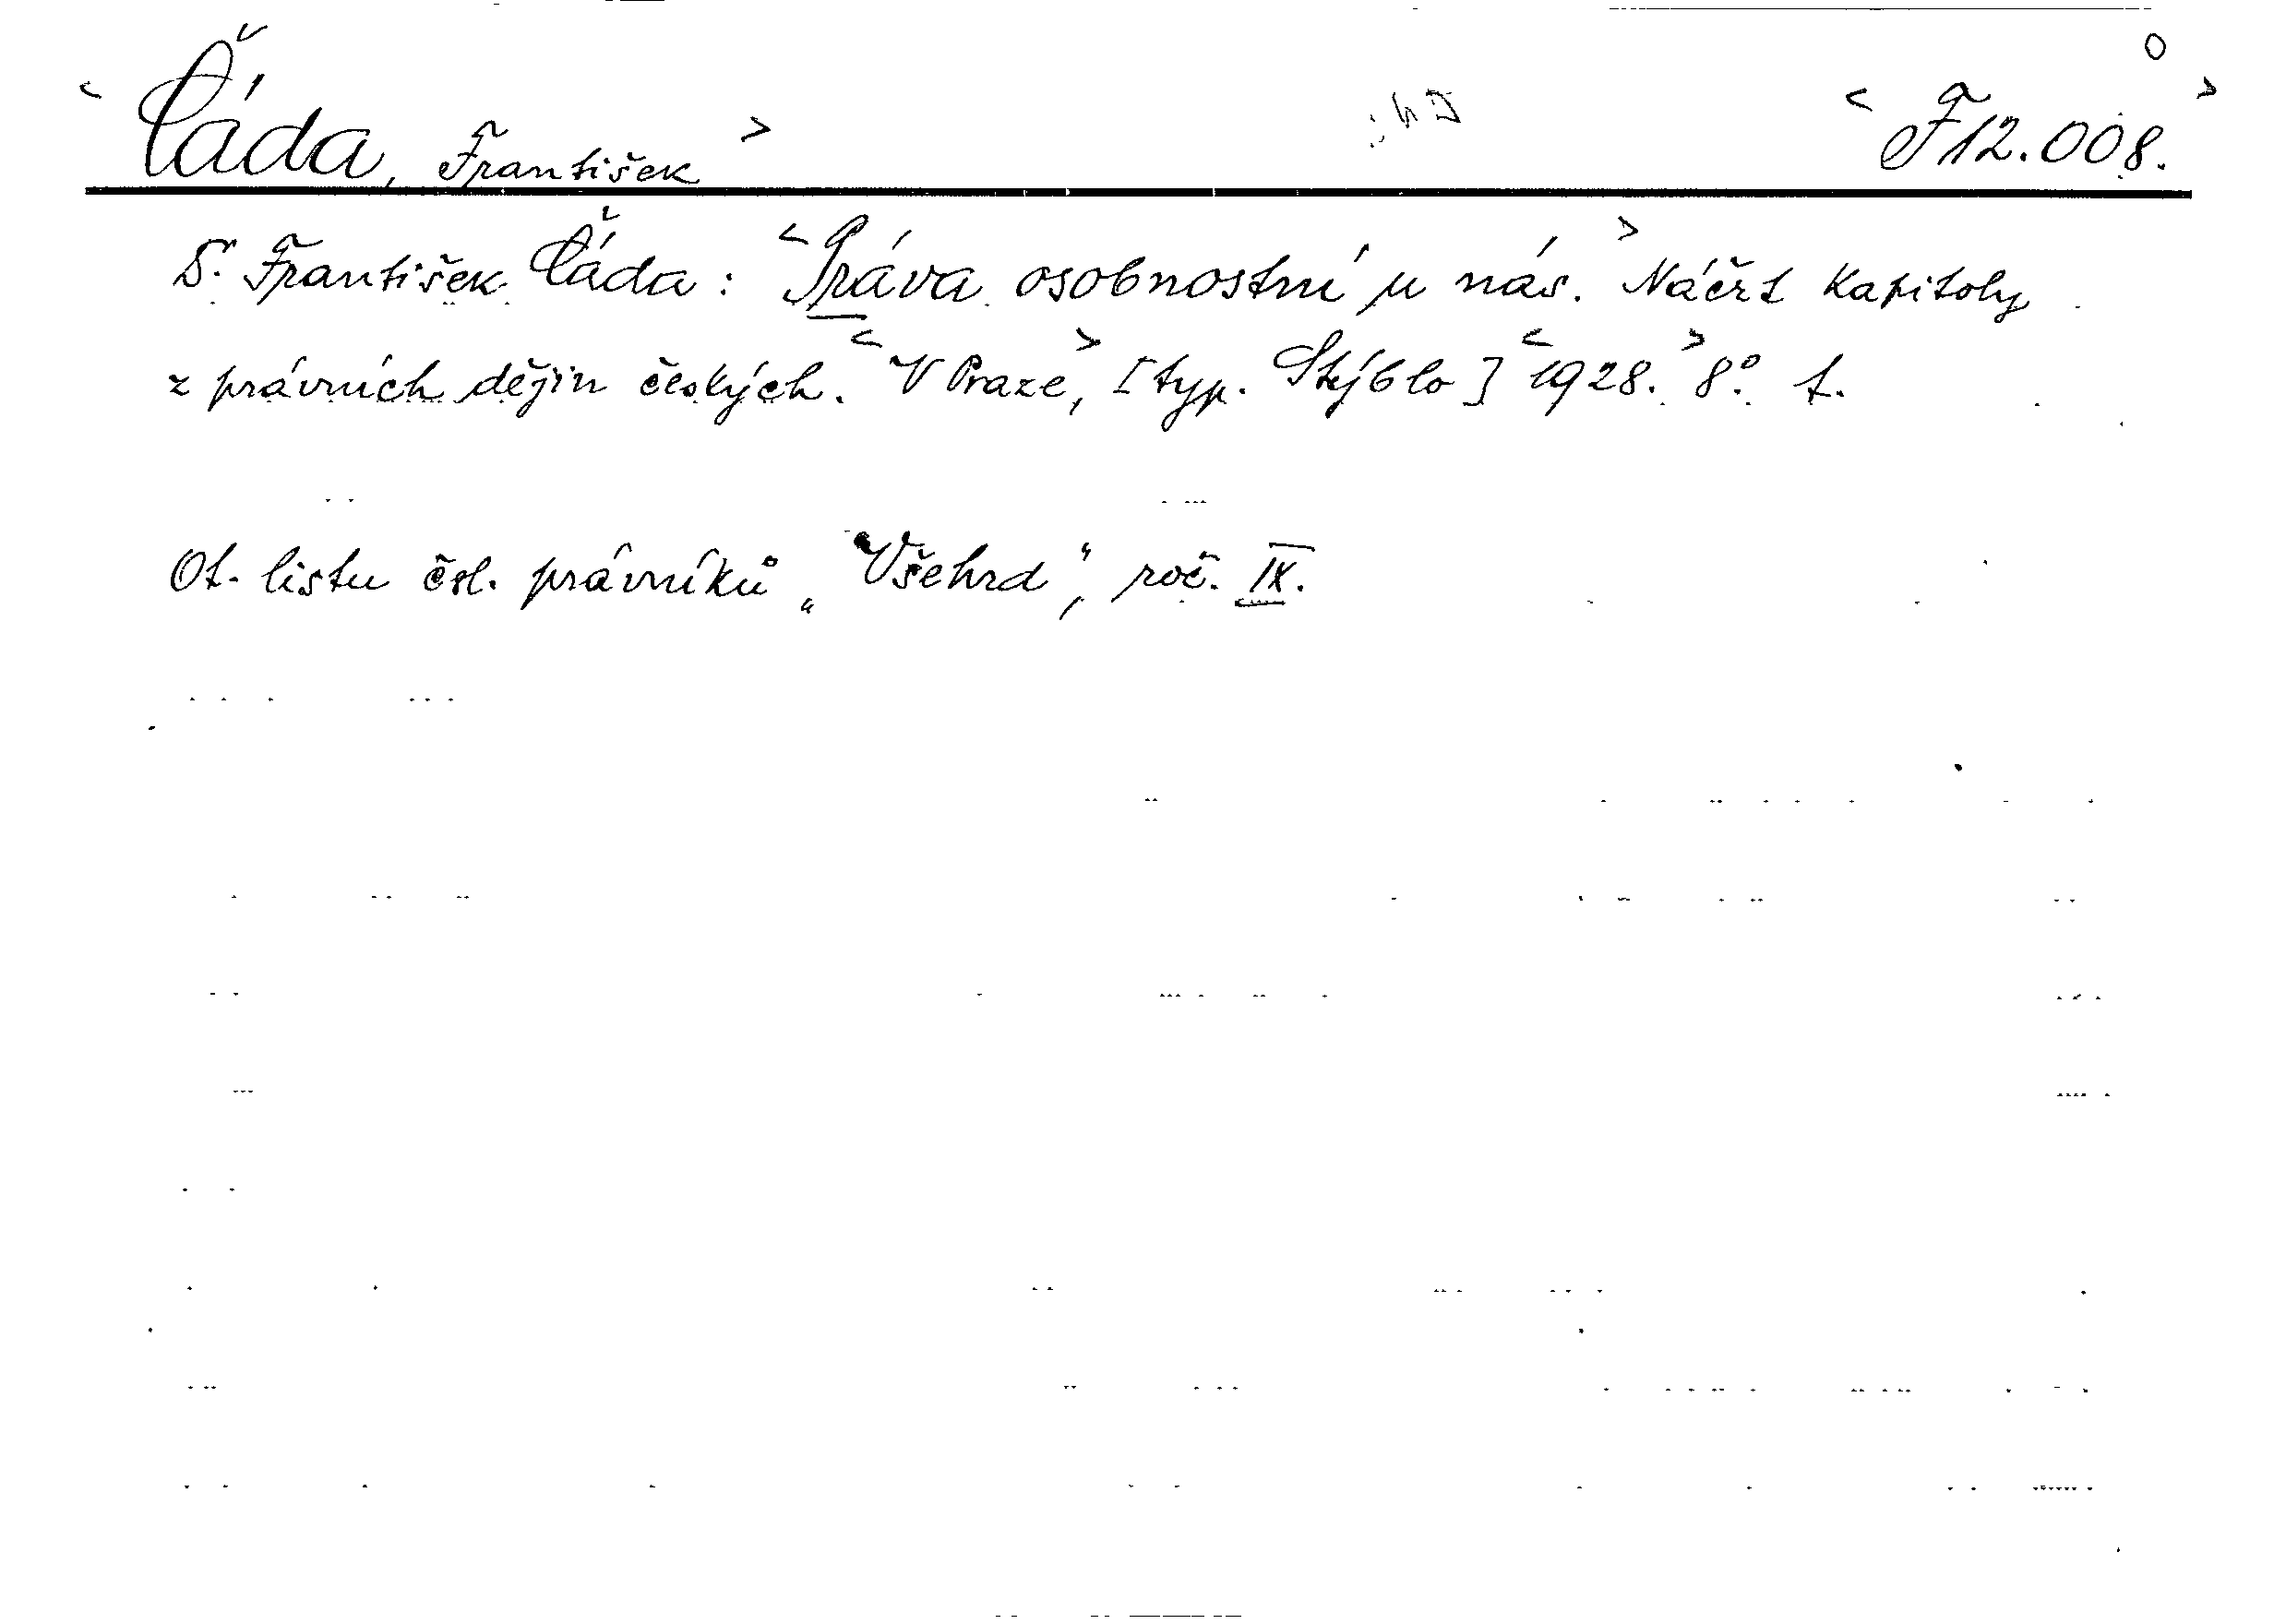 < Čáda, František > < F 12.008. >
Dr. František Čáda: < Práva osobnostní u nás. > Náčrt kapitoly
z právních dějin českých. < V Praze, > [typ. Stýblo] < 1928. > 8°. 1.
Ot. listu čsl. právníků „Všehrd“, roč. IX.